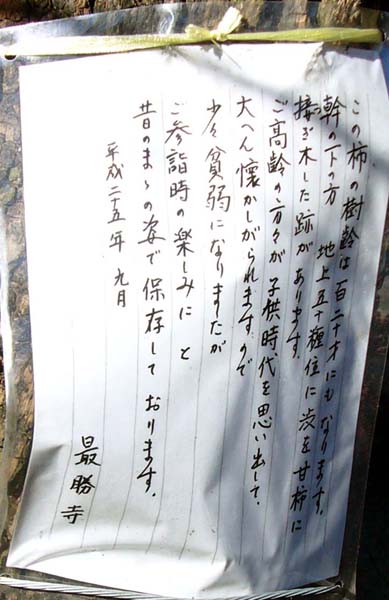 この柿の樹齢は百二十才にもなります。
幹の下の方　地上五十糎位に渋を甘柿に
接ぎ木した跡があります。
ご高齢の方々が子供時代を思い出して、
大へん懐かしがられますので
少々貧弱になりましたが
ご参詣時の楽しみにと
昔のまゝの姿で保存しております。
平成二十五年　九月
最勝寺